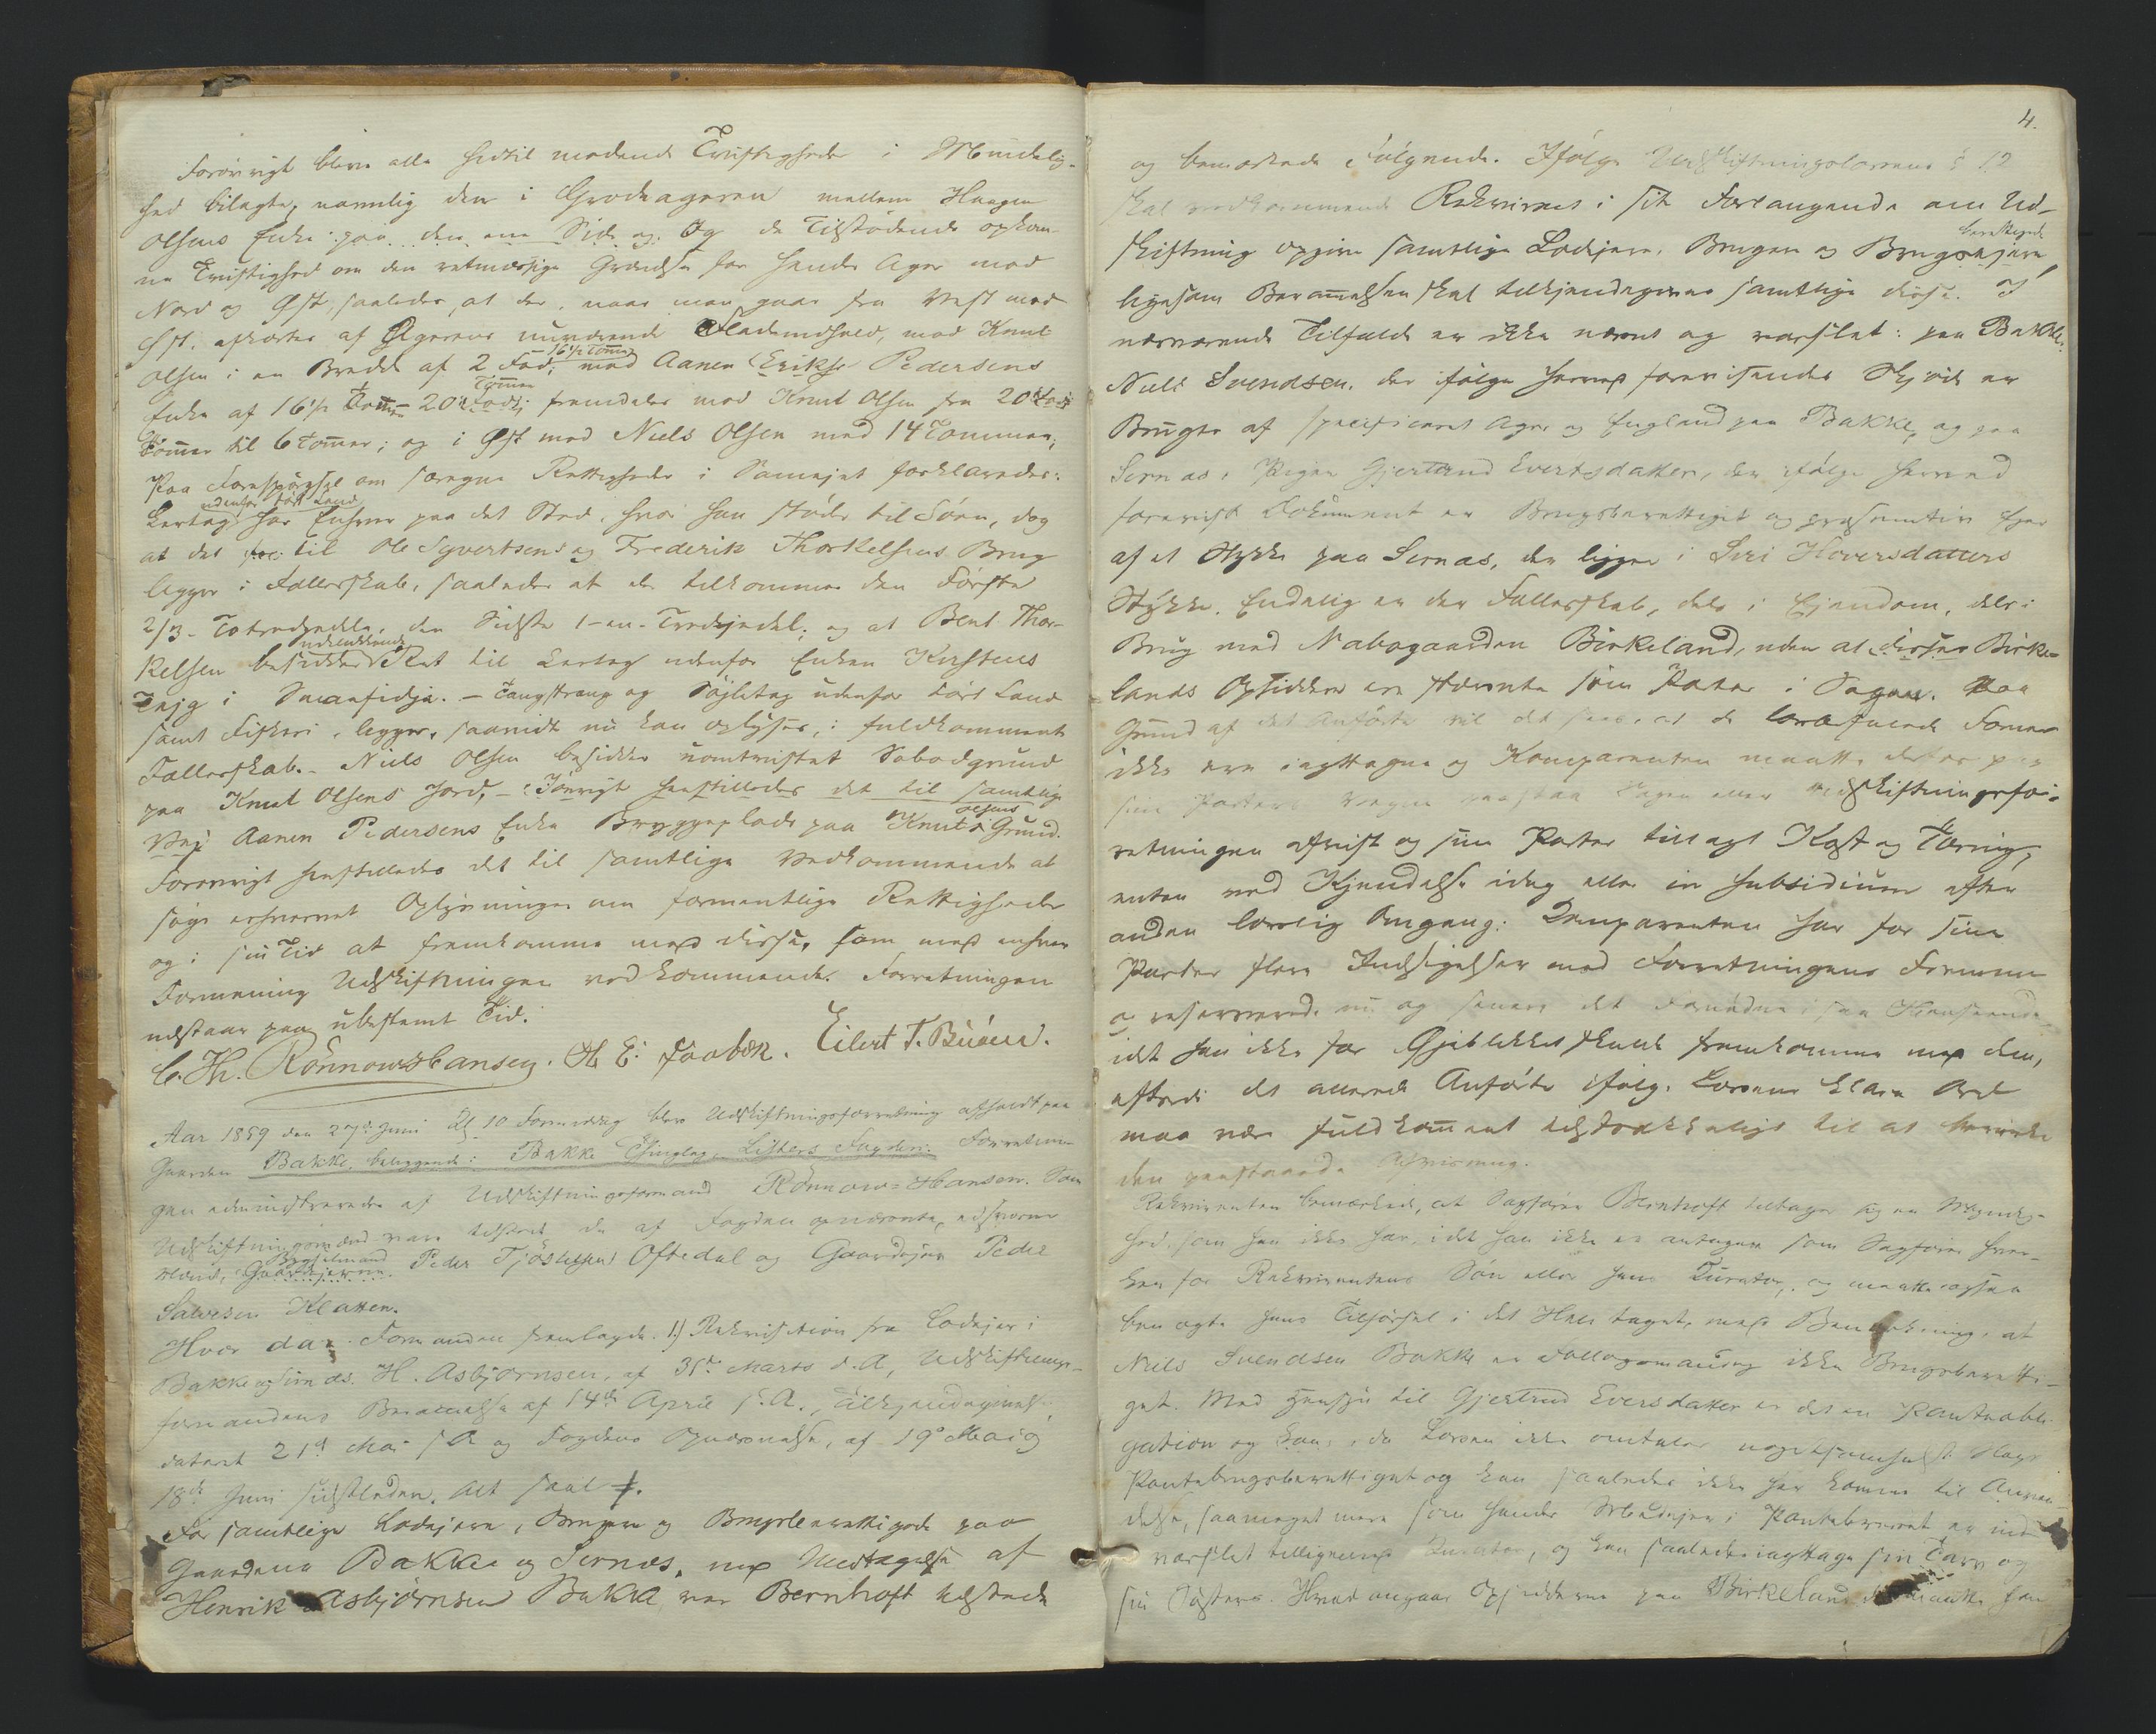 Forøvrigt bleve alle hidtil mødende Tvistigheder i Mindelig-
hed bilagte, navnlig den i Grødeageren mellem Haagen
Olsens Enke paa den ene Side og de Tilstødende opkom-
ne Tvistighed om den retmæssige Grændse for hendes Ager mod
Nord og Øst, saaledes, at der, naar man gaar fra Vest mod
Øst, afkortes af Agerens nuværende mod Knut
Olsen i en Bredde af 2 Fod, 16½ Tomme mod Aanen Eriksø Pedersens
Enke af 16½ Tomme 20 Tommer fremdeles mod Knut Olsen fra 20
Tommer til 6 Tommer; og i Øst mod Niels Olsen med 14 Tommer.
Paa Forespørgsel om særegne Rettigheder i Sameiet forklaredes:
udenfor tørt Land
Lertag har Enhver paa det Sted, hvor han støder til Søen, dog
at det til Ole Syvertsens og Frederik Thorkelsens Brug
ligger i Fællesskab, saaledes at der tilkommer den Første
2/3 - Totredjedele, den Sidste 1 - en - Tredjedel; og at Bent Thor-
kelsen besidder udelukkende Ret til Lertag udenfor Enken Kirstens
Teig i Smaafidja. - Tangstrang og Søjletag udenfor tørt Land
samt Fiskeri, ligger, saavidt nu kan oplyses, i fuldkomment
Fællesskab. - Niels Olsen besidder uomtvistet Søbodgrund
paa Knut Olsens Jord, - Iøvrigt henstilledes det til samtlige
Ved Aanen Pedersens Enke Bryggeplads paa Knut Olsens Grund.
Forøvrigt henstilledes det til samtlige Vedkommende at
søge erhvervet Oplysninger om formentlige Rettigheder
og i sin Tid at fremkomme med disse, som med enhver
Formening Udskiftningen vedkommende. Forretningen
udstaar paa ubestemt Tid.
C. Th. Rønnow-Hansen. H E. Faabek. Eilert T. Buøen.
Aar 1859 den 27de Juni Kl 10 Formiddag blev Udskiftningsforretning afholdt paa
Gaarden Bakke, beliggende i Bakke Thinglag Listers Fogderi. Forretnin-
gen administreredes af Udskiftningsformand Rønnow-Hansen. Som
Udskiftningsmænd vare tilstede de af Fogden opnævnte, edsvorne
Mænd, Bygselmand Gaardejerne Peder Tjøstelsen Oftedal og Gaardejer Peder
Salvesen Klatten.
Hvor da: Formanden fremlagde 1) Rekvisition fra Lodejer i
Bakke og Sirnæs H. Asbjørnsen, af 31te Marts d. A, Udskiftnings-
formandens Berammelse af 14de April s. A., Tilkjendegivelse
dateret 21de Mai s A og Fogdens Opnævnelse, af 19de Mai og
18de Juni sidstleden. Alt saal.
For samtlige Lodejere, Brugere og Brugsberettigede paa
Gaardene Bakke og Sirnæs, med Undtagelse af
Henrik Asbjørnsen Bakke var Bernhoft tilstede
4.
og bemærkede Følgende. Ifølge Udskiftningslovens § 12
skal vedkommende Rekvirent i sit Forlangende om Ud-
skiftning opgive samtlige Lodejere, Brugere og Brugsberettigede
ligesom Berammelsen skal tilkjendegives samtlige disse. I
nærværende Tilfælde er ikke nævnt og varslet: paa Bakke
Niels Svendsen, der ifølge herved forevisende Skjøde er
Bruger af specificeret Ager og England paa Bakke, og paa
Sirnæs, Pigen Gjertrud Evertsdatter, der ifølge herved
forevist Dokument er Brugsberettiget og præsumtiv Ejer
af et Stykke paa Sirnæs, der ligger i Siri Hoversdatters
Stykke. Endelig er der Fællesskab, dels i Ejendom, dels i
Brug med Nabogaarden Birkeland, uden at disses Birke-
lands Opsiddere ere stævnte som Parter i Sagen. Paa
Grund af det Anførte vil det sees, at de lovbefalede Former
ikke ere iagttagne og Komparenten maatte derfor paa
sine Parters Vegne paastaa Sagen eller Udskiftningsfor-
retningen afvist og sine Parter tillagt Kost og Tæring,
enten ved Kjendelse idag eller in subsidium efter
anden lovlig Omgang. Komparenten har for sine
Parter flere Indsigelser mod Forretningens Fremme
og reserverede nu og senere det Fornødne i saa Henseende
idet han ikke for Øieblikket skulde fremkomme med dem,
efterdi det allerede Anførte ifølge Lovens klare Ord
maa være fuldkomment tilstrækkeligt til at bevirke
den paastaaede Afvisning.
Rekvirenten bemærkede, at Sagfører Bernhoft tiltager sig en Myndig-
hed, som han ikke har, idet han ikke er antagen som Sagfører hver-
ken for Rekvirentens Søn eller hans Kurator, og maatte ogsaa
benegte hans Tilførsel i det Hele taget, med Bemærkning, at
Niels Svendsen Bakke er Føllogsmand og ikke Brugsberetti-
get. Med Hensyn til Gjertrud Eversdatter er det en Panteobli-
gation og kan, da Loven ikke omtaler nogensomhelst Slags
Pantebrugsberettiget og kan saaledes ikke her komme til Anven-
delse, saameget mere som hendes Medejer i Pantebrevet er ind-
varslet tilligemed Kurator, og kan saaledes iagttage sin Tarv og
sin Søsters. Hvad angaar Opsidderne paa Birkeland, da maatte han